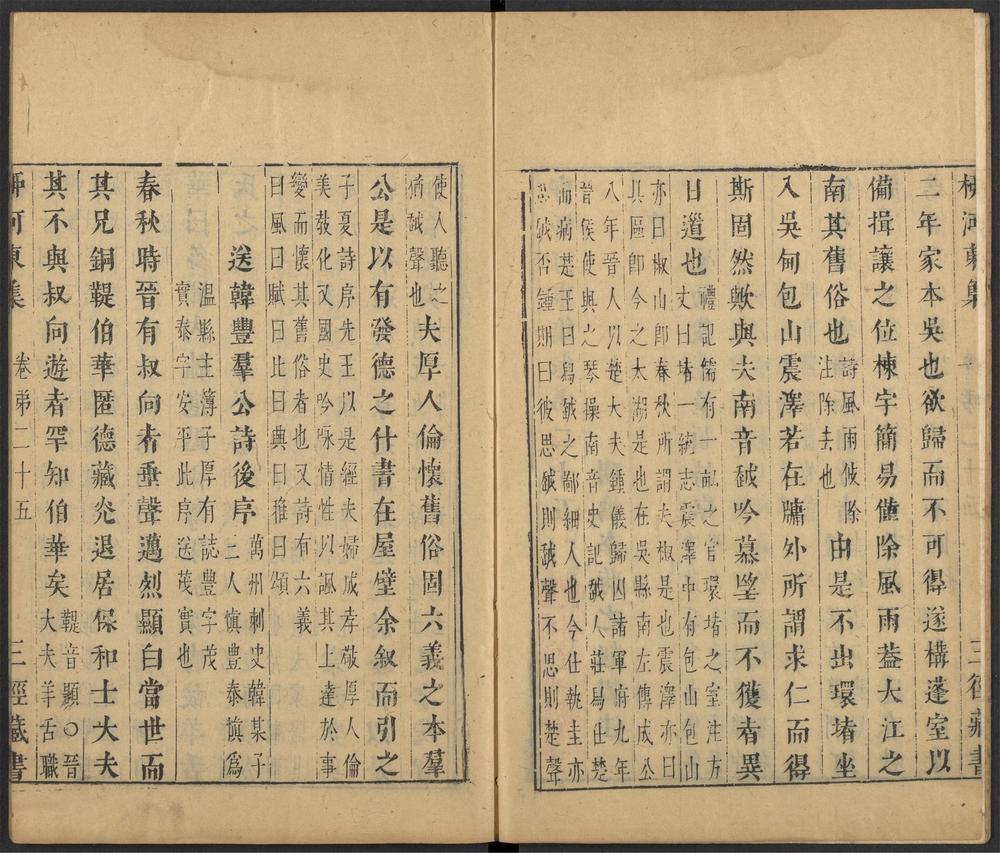 柳河東集
三徑藏書
二年家本吳也欲歸而不可得遂構蓬室以
備揖讓之位棟宇簡易僅除風雨蓋大江之
南其舊俗也
詩風雨攸除
注除去也
由是不出環堵坐
入吳甸包山震澤若在牖外所謂求仁而得
斯固然歟與夫南音越吟慕望而不獲者異
日道也
禮記儒有一畝之宮環堵之室注方
丈曰堵一統志震澤中有包山包山
亦曰椒山卽春秋所謂夫椒是也震澤亦曰
具區卽今之太湖是也在吳縣南左傳成公
八年晉人以楚大夫鍾儀歸囚諸軍府九年
晉侯使與之琴操南音史記越人莊舄仕楚
而病楚王曰舄越之鄙細人也今仕執圭亦
思越否鍾期曰彼思越則越聲不思則楚聲
使人聽之
猶越聲也
夫厚人倫懷舊俗固六義之本羣
公是以有發德之什書在屋壁余叙而引之
子夏詩序先王以是經夫婦成孝敬厚人倫
美敎化又國史吟咏情性以諷其上達於事
變而懷其舊俗者也又詩有六義
曰風曰賦曰比曰興曰雅曰頌
送韓豐羣公詩後序
萬州刺史韓某子
二人愼豐泰愼爲
溫縣主簿子厚有誌豐字茂
實泰字安平此序送茂實也
春秋時晉有叔向者垂聲邁烈顯白當世而
其兄銅鞮伯華匿德藏光退居保和士大夫
其不與叔向遊者罕知伯華矣
鞮音顯○晉
大夫羊舌職
柳河東集
卷第二十五
三徑藏書